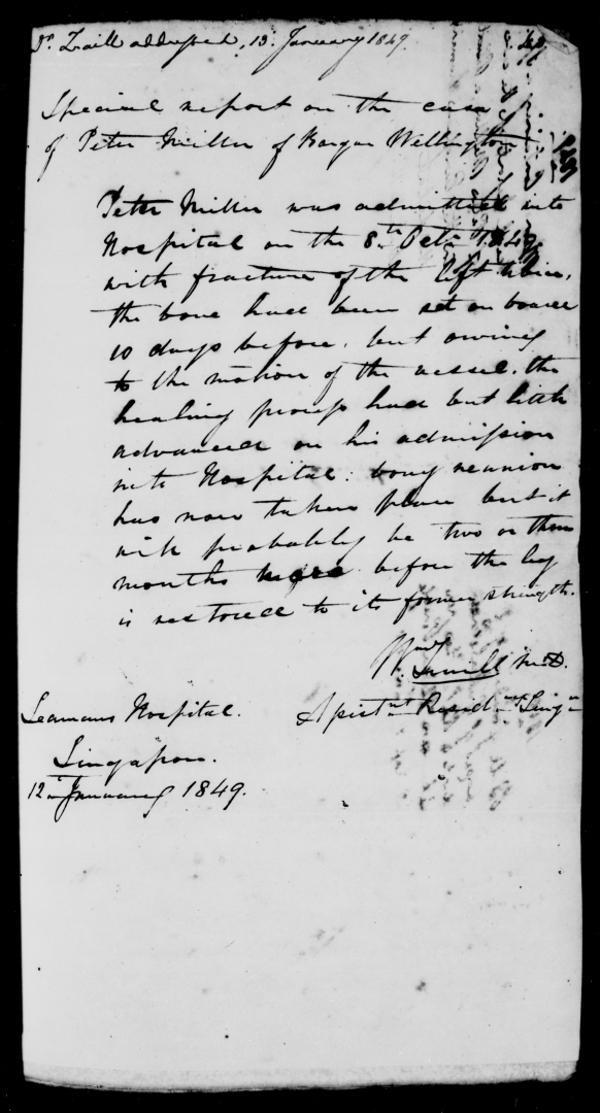 Dr. Traill addressed, 13. January 1849.
Special report on the case
of Peter Miller of Barque Wellington
Peter Miller was admitted into
Hospital on the 8th Octr
with fracture of the left tibia,
the bone had been set on board
10 days before, but owing
to the motion of the vessel, the
healing process had but little
advanced on his admission
into Hospital: bony reunion
has now taken place but it
will probably be two or three
months more before the leg
is restored to its former strength.
Traill M.D.
Assistnt Resid
Seamans Hospital.
Singapore.
12 January 1849.